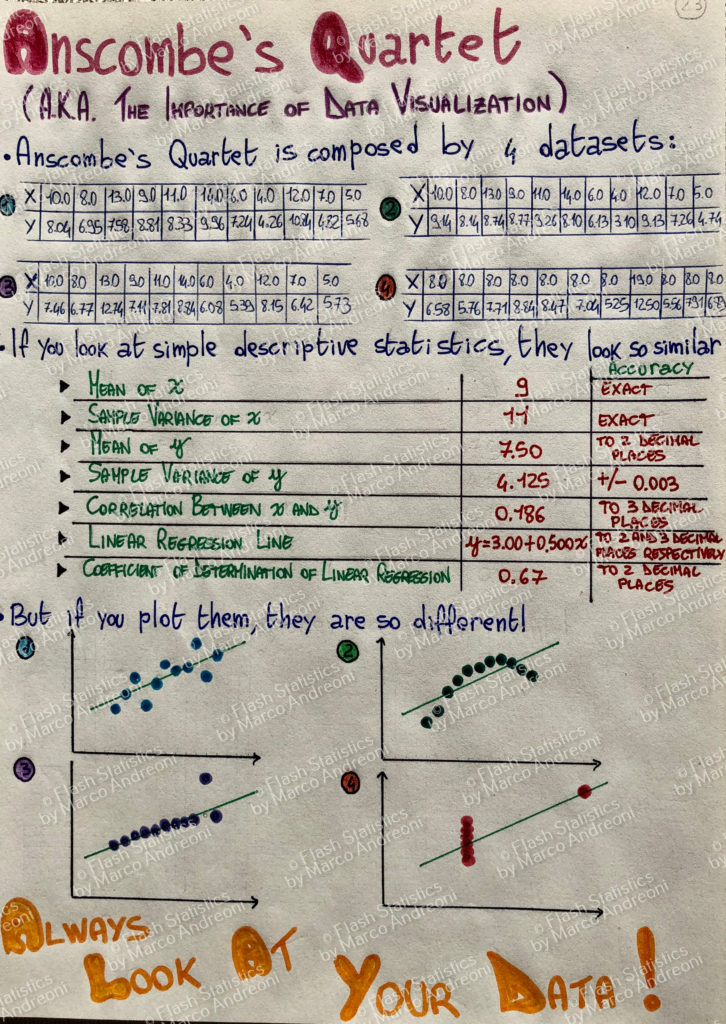 Anscombe's Quartet
(A.K.A. The Importance of Data Visualization)
• Anscombe's Quartet is composed by 4 datasets:
1
X 10.0 8.0 13.0 9.0 11.0 14.0 6.0 4.0 12.0 7.0 5.0
Y 8.04 6.95 7.58 8.81 8.33 9.96 7.24 4.26 10.84 4.82 5.68
2
X 10.0 8.0 13.0 9.0 11.0 14.0 6.0 4.0 12.0 7.0 5.0
Y 9.14 8.14 8.74 8.77 9.26 8.10 6.13 3.10 9.13 7.26 4.74
3
X 10.0 8.0 13.0 9.0 11.0 14.0 6.0 4.0 12.0 7.0 5.0
Y 7.46 6.77 12.74 7.11 7.81 8.84 6.08 5.39 8.15 6.42 5.73
4
X 8.0 8.0 8.0 8.0 8.0 8.0 8.0 19.0 8.0 8.0 8.0
Y 6.58 5.76 7.71 8.84 8.47 7.04 5.25 12.50 5.56 7.91
• If you look at simple descriptive statistics, they look so similar
Accuracy
Mean of x 9 Exact
Sample Variance of x 11 Exact
Mean of y 7.50 To 2 decimal
places
Sample Variance of y 4.125 +/- 0.003
Correlation Between x and y 0.186 To 3 decimal
places
Linear Regression Line y=3.00+0.500x To 2 and 3 decimal
places respectively
Coefficient of Determination of Linear Regression 0.67 To 2 decimal
places
• But if you plot them, they are so different!
1
2
3
4
Always
Look At
Your Data!
© Flash Statistics
by Marco Andreoni